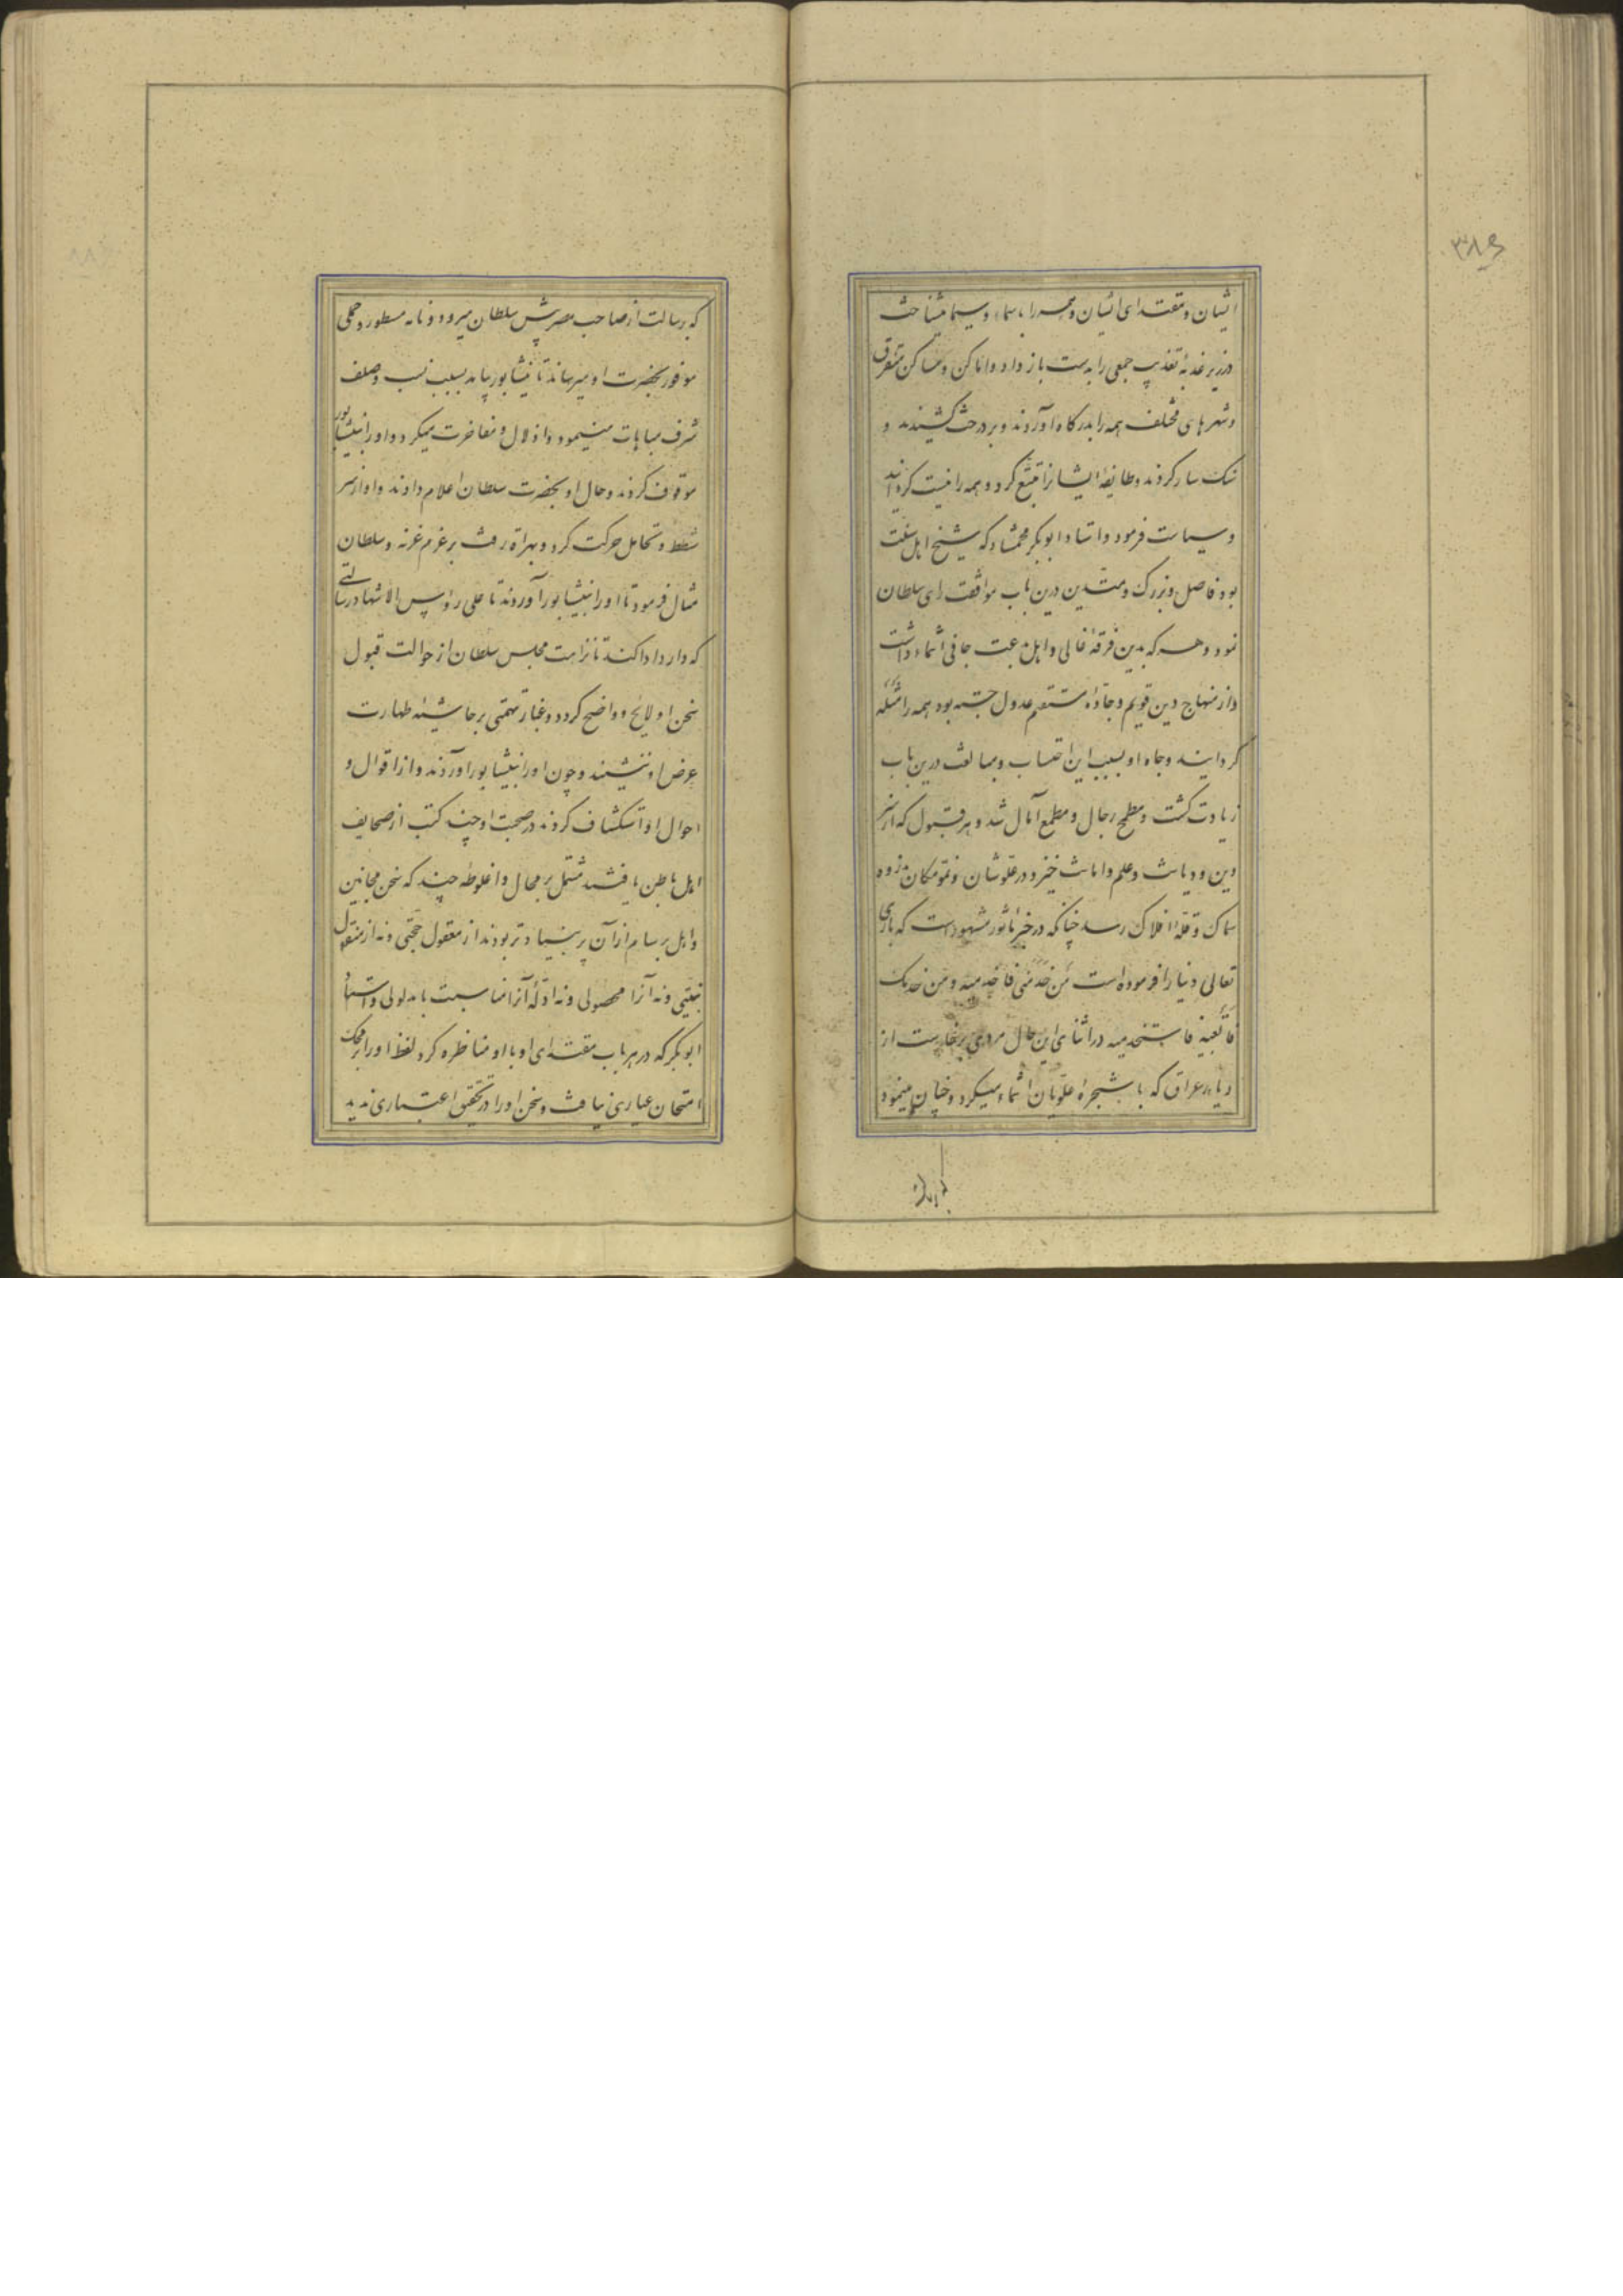 ایشان و مقتدای ایشان و همه را باسماء و سیما میشناخت
در زیر عذبهٔ تعذیب جمعی را بدست باز داد و از اماکن و مساکن متفرق
و شهرهای مختلف همه را بدرکاه آوردند و بر درخت کشیدند و
سنک سار کردند و طایفهٔ ایشانرا تتبع کرد و همه را نیست کردانید
و سیاست فرمود و استاد ابوبکر محمشاد که شیخ اهل سنت
بود فاضل و بزرک و متدین درین باب موافقت رای سلطان
نمود و هر که بدین فرقهٔ غالی و اهل بدعت جافی انتماء داشت
و از منهاج دین قویم و جادهٔ مستقیم عدول جسته بود همه را مثله
کردانید و جاه او بسبب این احتساب و مبالغت درین باب
زیادت کشت و مطمح رجال و مطمع آمال شد و هر قبول که از سر
دین و دیانت و علم و امانت خیزد در علو شان و نمو مکان بذروه
سماک و قلهٔ افلاک رسد چنانکه در خبر ماثور مشهور است که باری
تعالی دنیا را فرموده است من خدمنی فاخدمیه و من خدمک
فاتعبیه فاستخدمیه در اثنای این حال مردی برخاست از
دیار عراق که با شجرهٔ علویان انتماء میکرد و چنان مینمود
که برسالت
که برسالت از صاحب مصر پیش سلطان میرود و نامه مسطور و حملی
موفور بحضرت او میرساند تا نیشابور بیامد بسبب نسب و صلف
شرف مباهات مینمود و اذلال و مفاخرت میکرد و او را بنیشابور
موقوف کردند و حال او بحضرت سلطان اعلام دادند و او از سر
شطط و تحامل حرکت کرد و بهراة رفت بر عزم غزنه و سلطان
مثال فرمود تا او را بنیشابور آوردند تا علی رؤس الاشهاد رسالتی
که دارد ادا کند تا نزاهت مجلس سلطان از حوالت قبول
سخن او لایح و واضح کردد و غبار تهمتی بر حاشیهٔ طهارت
عرض او ننشیند و چون او را بنیشابور آوردند و از اقوال و
احوال او استکشاف کردند در صحبت او چند کتب از صحایف
اهل باطن یافتند مشتمل بر محال و اغلوطهٔ چند که سخن مجانین
و اهل برسام از آن بر بنیاد تر بودند از معقول حجتی و نه از منقول
بینتی و نه آنرا محصولی و نه ادلهٔ آنرا مناسبت با مدلولی و استاد
ابوبکر که در هر باب مقتدای او با او مناظره کرد لفظ او را بر محک
امتحان عیاری نیافت و سخن او را در تحقیق اعتباری ندید